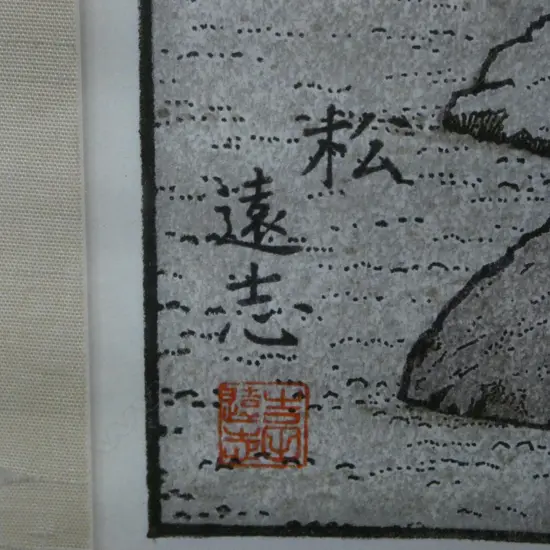 松
遠志